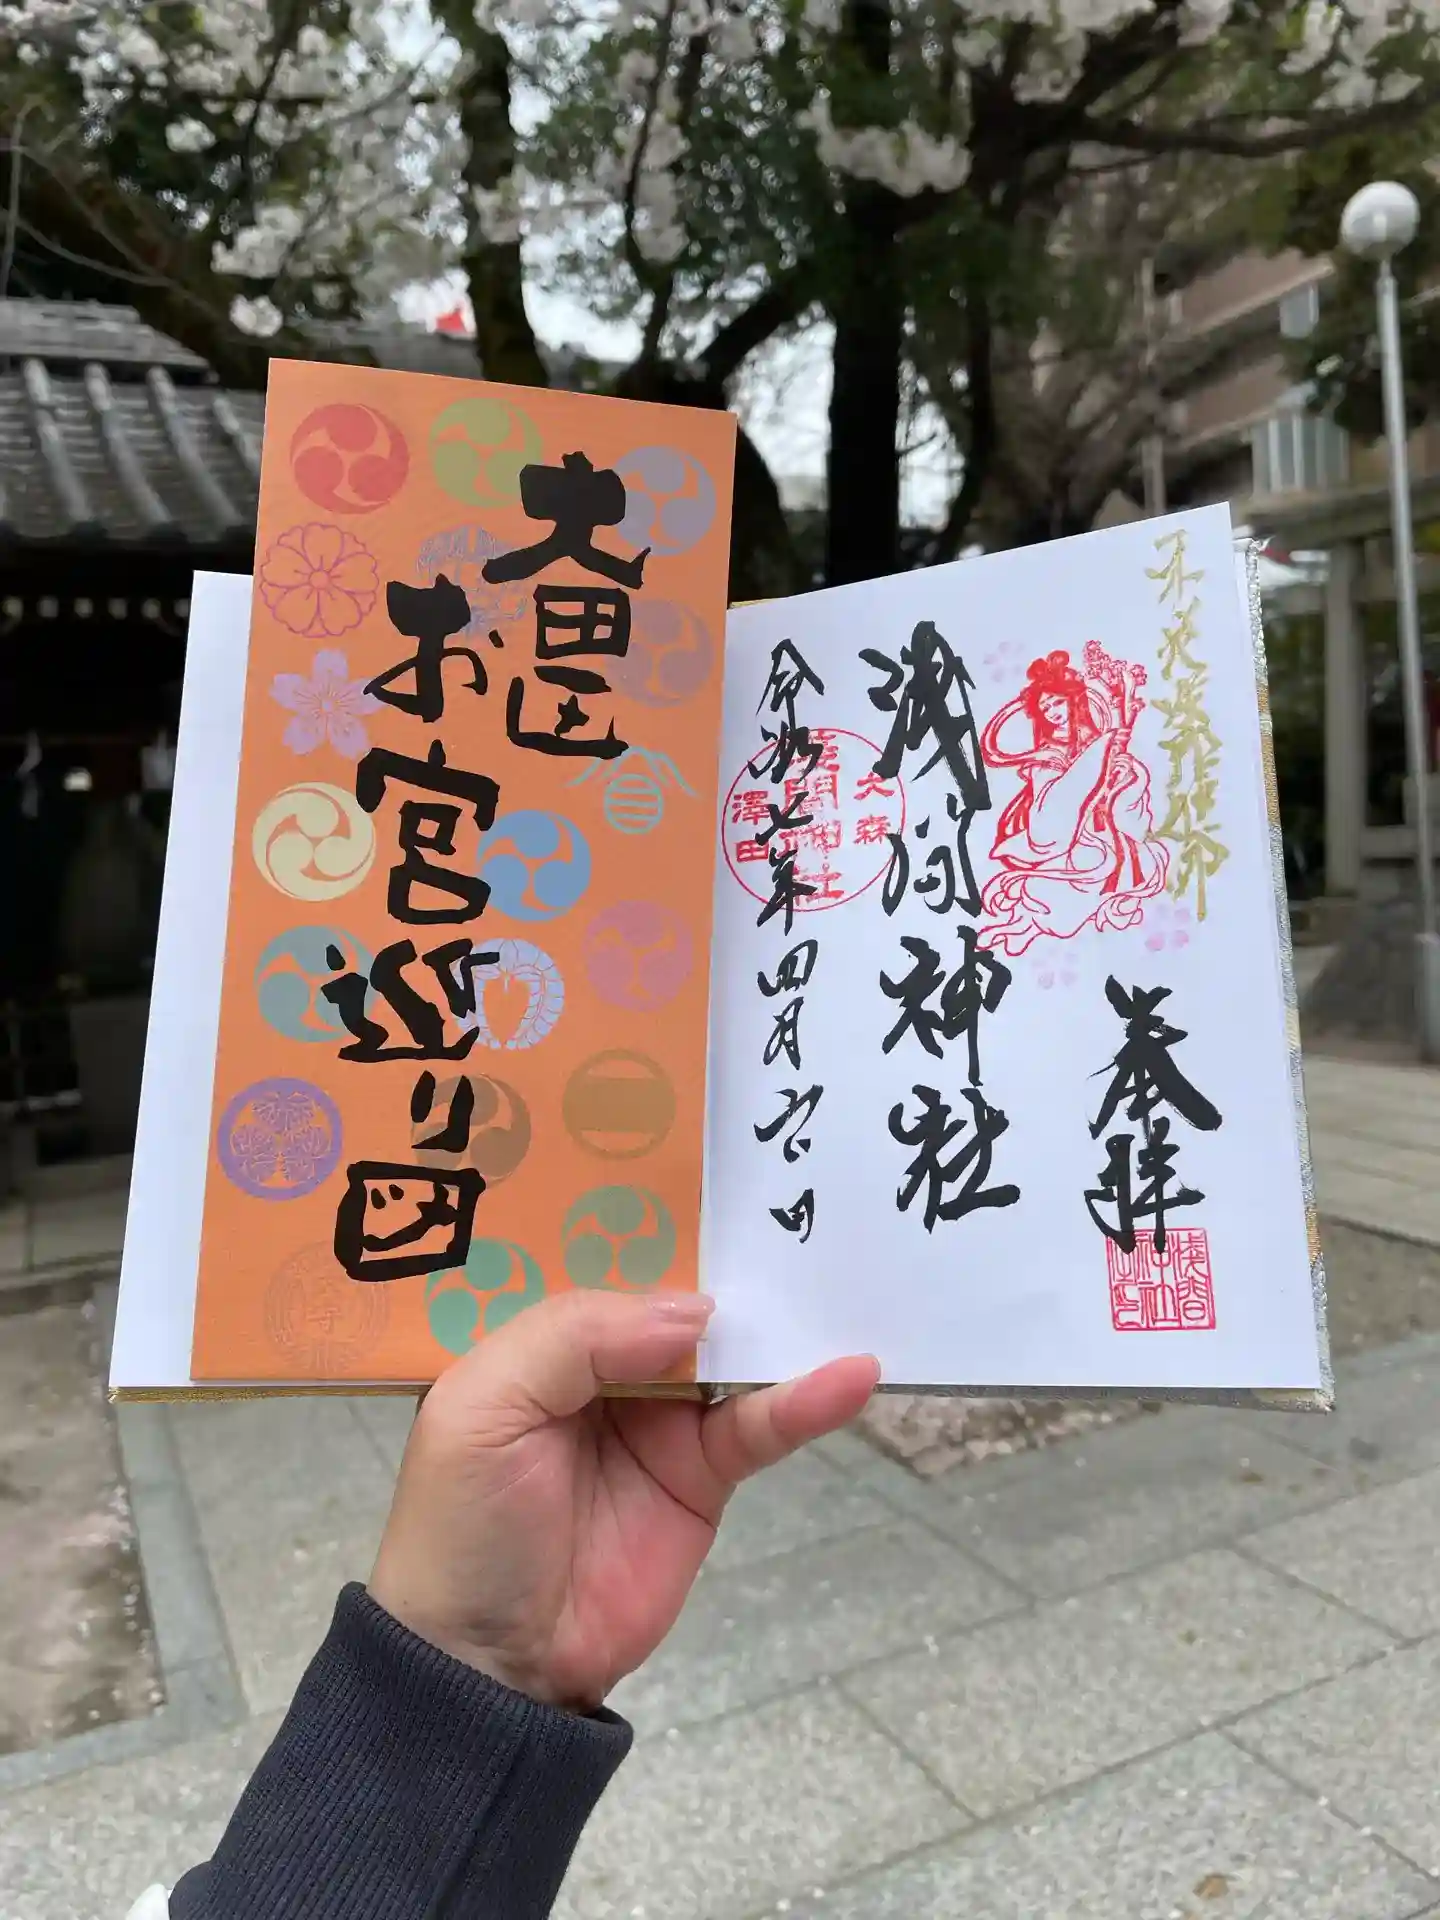 大田区
お宮巡り図
木花咲耶姫命
奉拝
浅間神社
令和七年四月六日
大森
浅間神社
澤田
浅間
神社